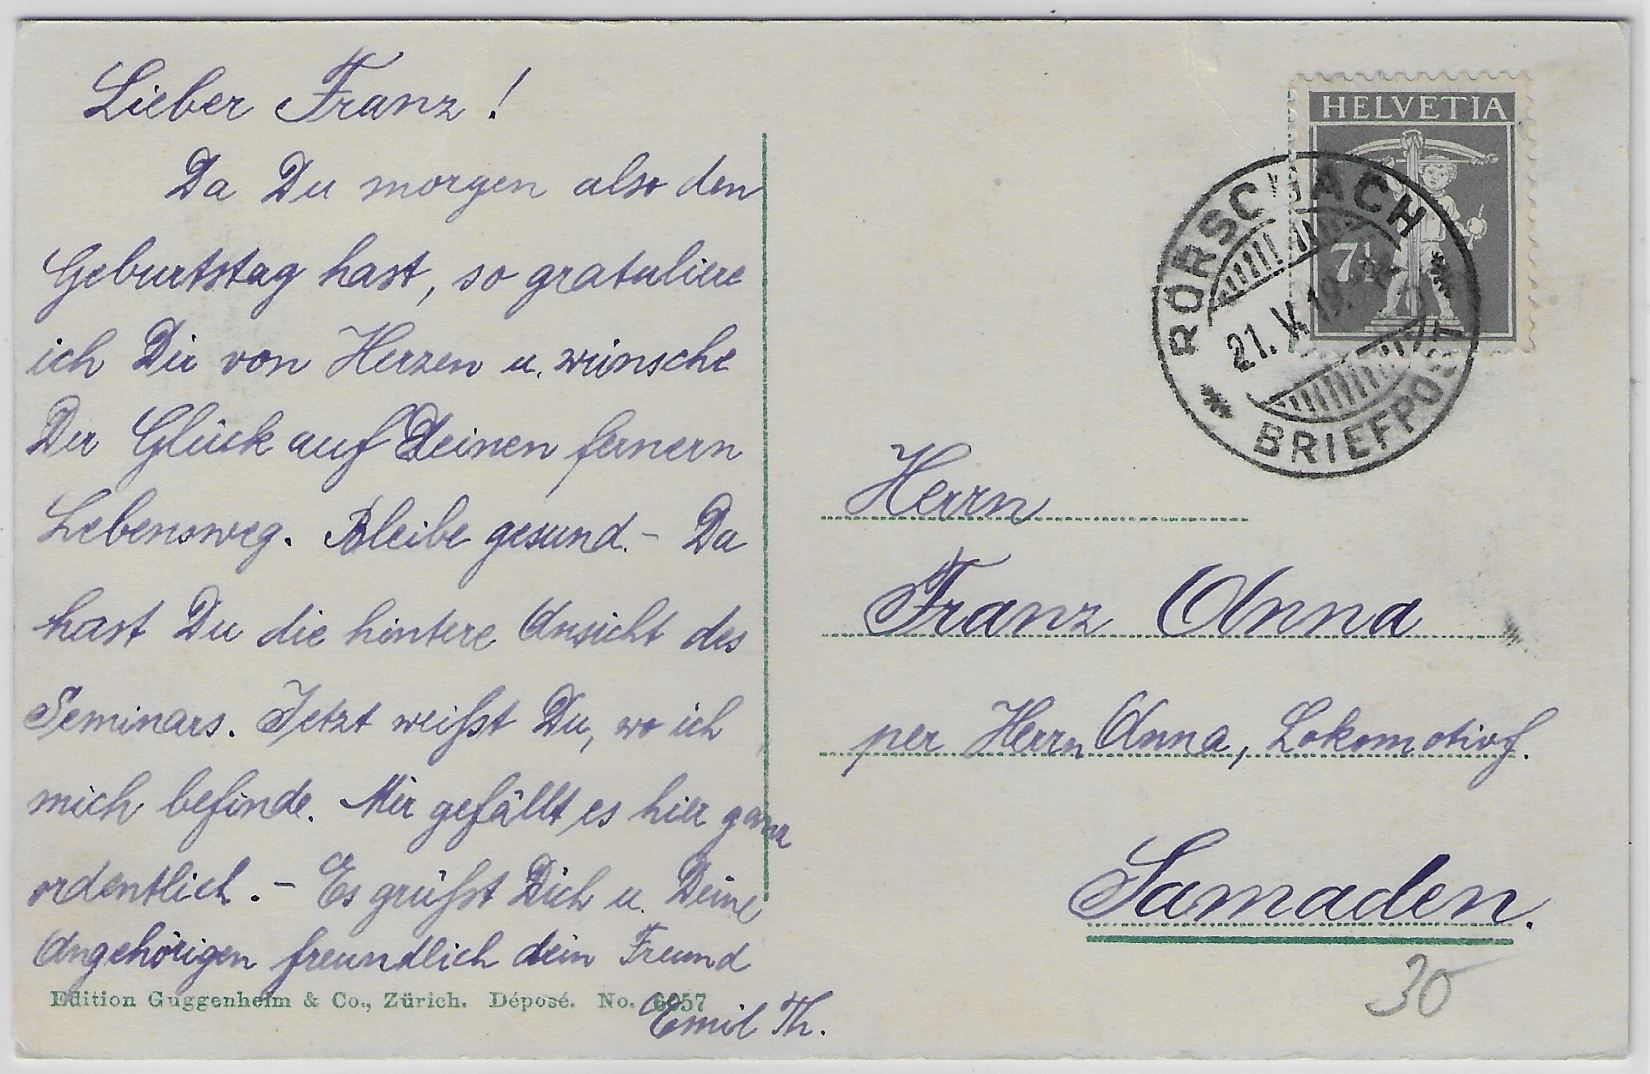 Lieber Franz!
Da Du morgen also den
Geburtstag hast, so gratuliere
ich Dir von Herzen u. wünsche
Dir Glück auf Deinen fernern
Lebensweg. Bleibe gesund. - Da
hast Du die hintere Ansicht des
Seminars. Jetzt weißt Du, wo ich
mich befinde. Mir gefällt es hier ganz
ordentlich. - Es grüßt Dich u. Deine
Angehörigen freundlich dein Freund
Emil Th.
Edition Guggenheim & Co., Zürich. Déposé. No. 6957
HELVETIA
7½
RORSCHACH
21. X. 19
BRIEFPOST
Herrn
Franz Anna
per Herrn Anna, Lokomotivf.
Samaden.
30